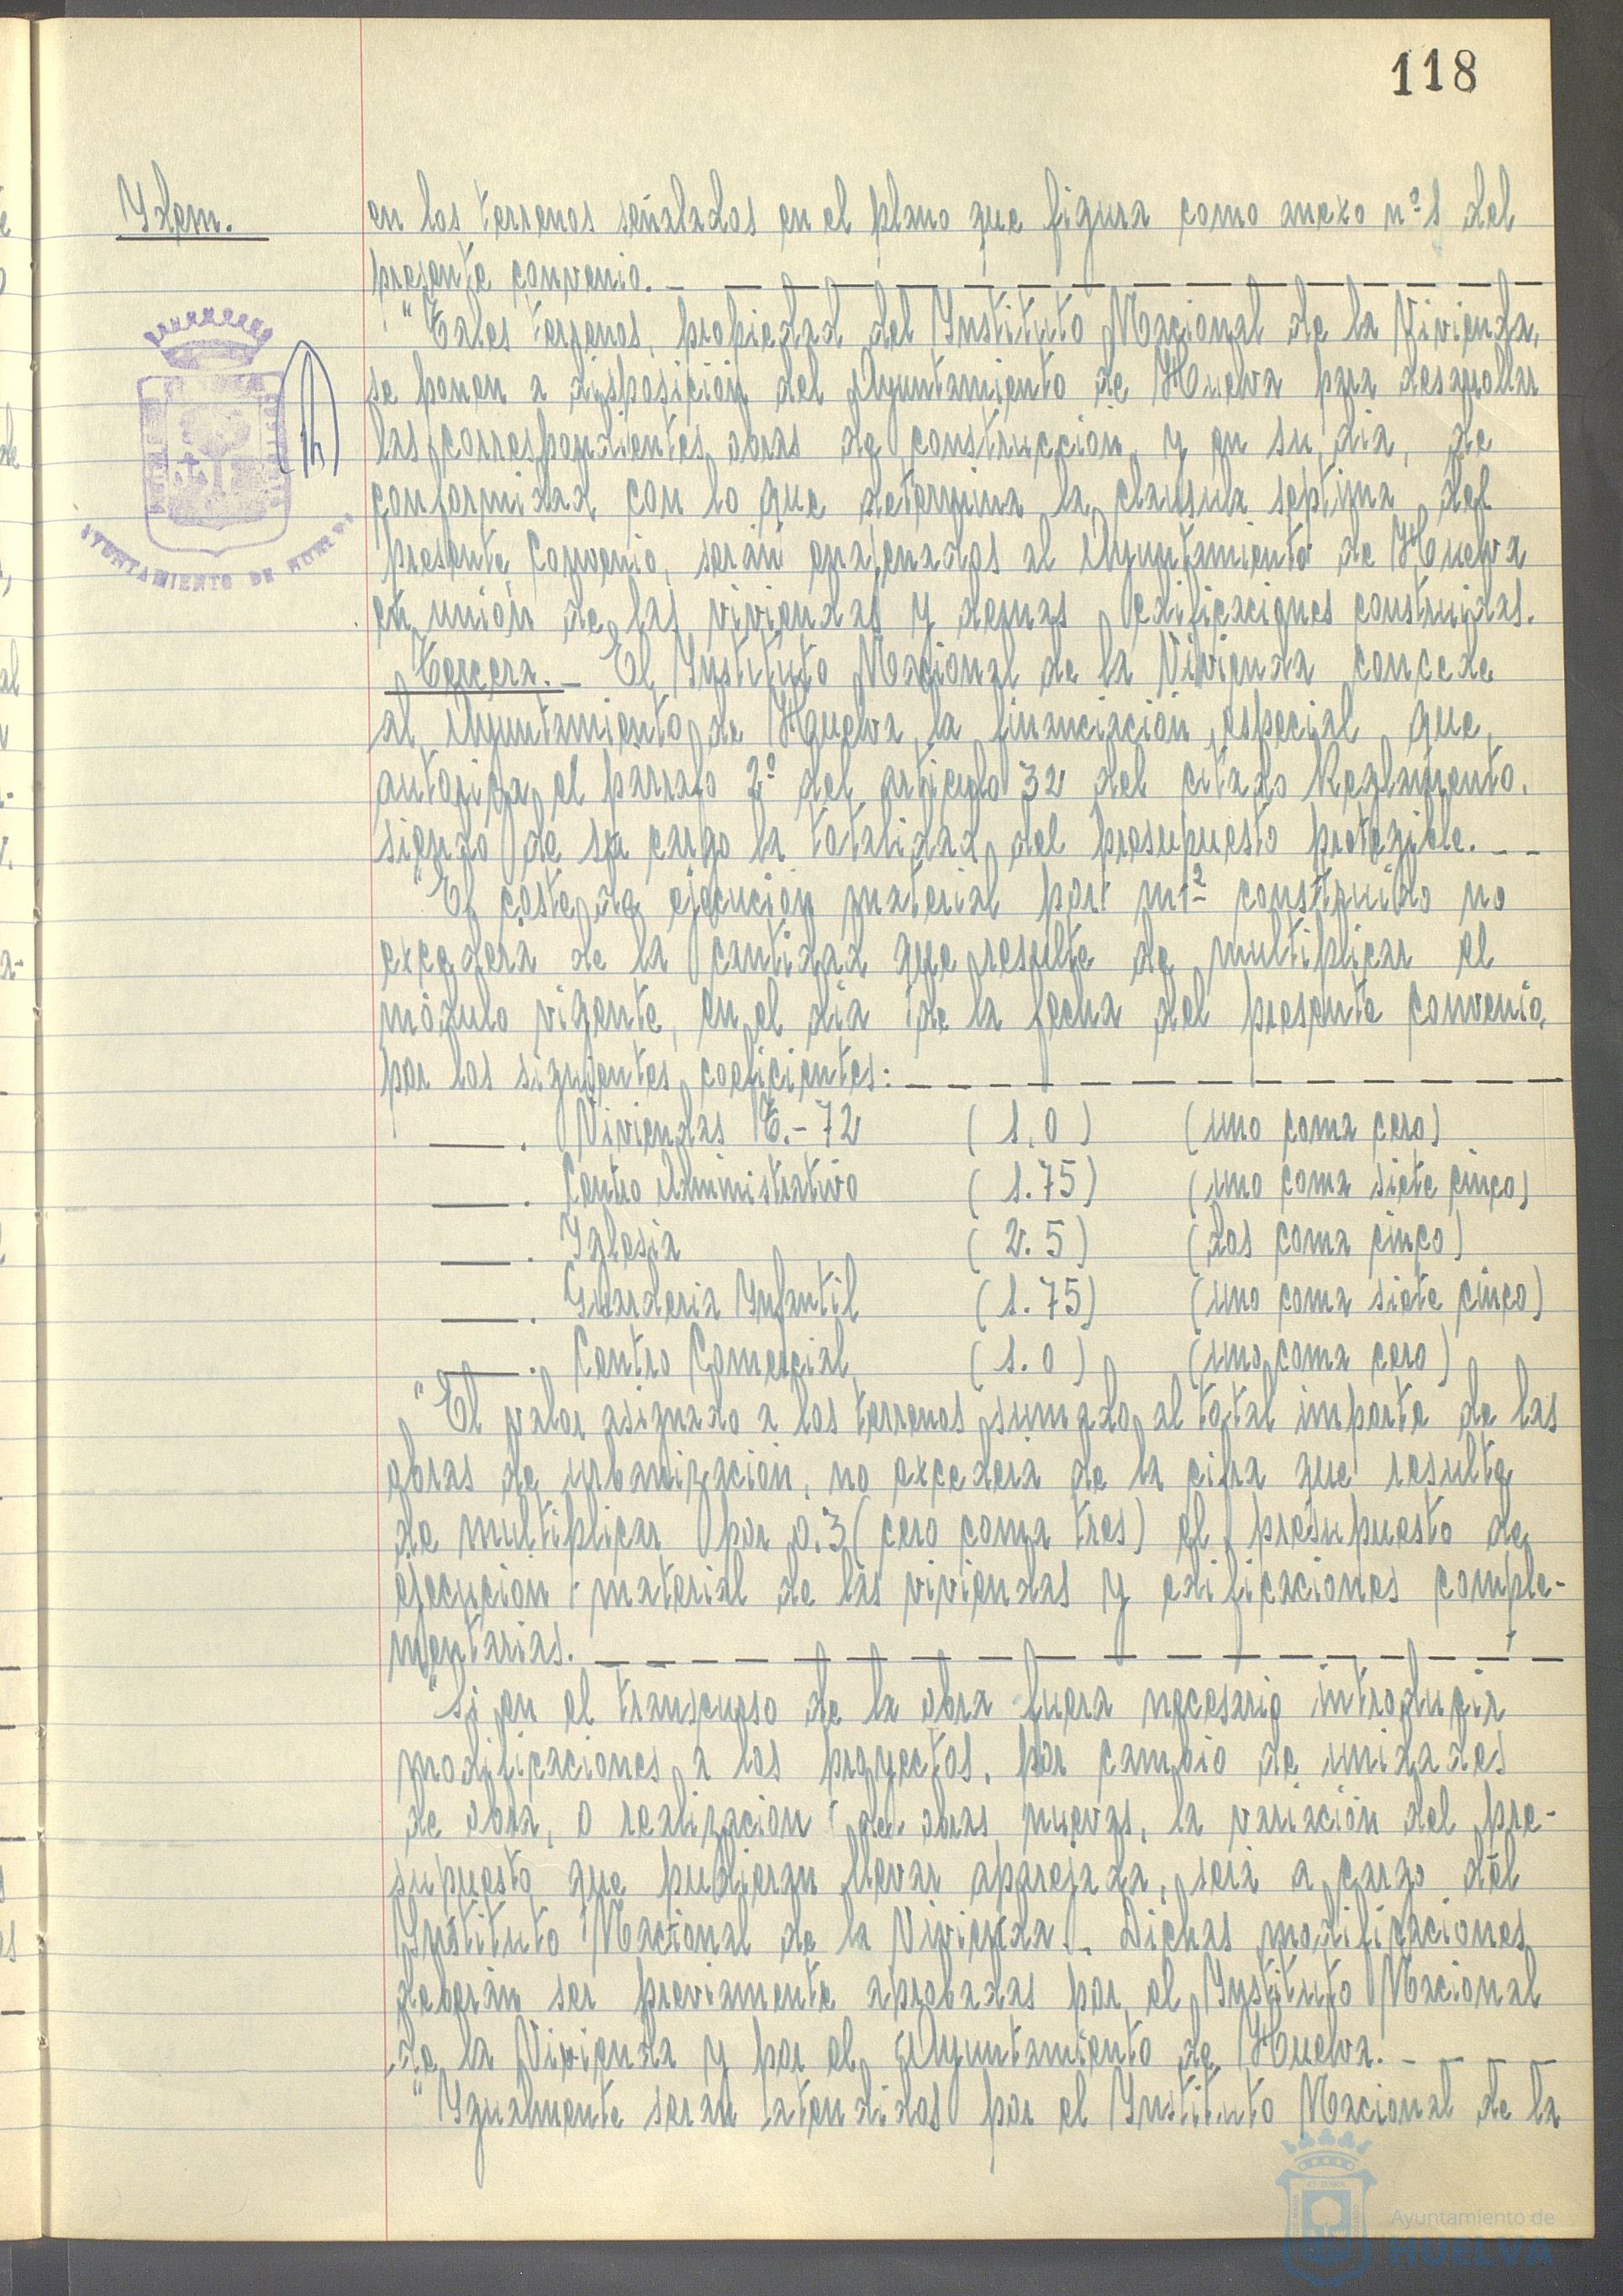 118
Ydem.
en los terrenos señalados en el plano que figura como anexo nº 1 del
presente convenio. _ _ _ _ _ _ _ _ _ _ _ _ _
"Tales terrenos, propiedad del Ynstituto Nacional de la Vivienda,
se ponen a disposición del Ayuntamiento de Huelva para desarrollar
las correspondientes obras de construcción y en su dia, de
conformidad con lo que determina la clausula septima del
presente Convenio, serán enajenados al Ayuntamiento de Huelva
en unión de las viviendas y demas edificaciones construidas.
Tercera._ El Ynstituto Nacional de la Vivienda concede
al Ayuntamiento de Huelva la financiación especial que
autoriza el parrafo 2º del articulo 32 del citado Reglamento,
siendo de su cargo la totalidad del presupuesto protegible. _ _
"El coste de ejecución material por m² construido no
excederá de la cantidad que resulte de multiplicar el
módulo vigente, en el dia de la fecha del presente convenio,
por los siguientes coeficientes: _ _ _ _ _ _ _ _ _ _ _ _
___ . Viviendas T.-72 (1,0) (uno coma cero)
___ . Centro Administrativo (1.75) (uno coma siete cinco)
___ . Yglesia (2.5) (dos coma cinco)
___ . Guarderia Ynfantil (1.75) (uno coma siete cinco)
___ . Centro Comercial (1.0) (uno coma cero)
"El valor asignado a los terrenos sumado al total importe de las
obras de urbanización, no excederá de la cifra que resulte
de multiplicar por 0,3 (cero coma tres) el presupuesto de
ejecución material de las viviendas y edificaciones comple-
mentarias. _ _ _ _ _ _ _ _ _ _ _ _ _ _ _
"Si en el transcurso de la obra fuera necesario introducir
modificaciones a los proyectos, por cambio de unidades
de obra, o realización de obras nuevas, la variación del pre-
supuesto que pudieran llevar aparejada, será a cargo del
Ynstituto Nacional de la Vivienda. Dichas modificaciones
deberán ser previamente aprobadas por el Ynstituto Nacional
de la Vivienda y por el Ayuntamiento de Huelva. _ _ _ _
"Ygualmente serán atendidos por el Ynstituto Nacional de la
AYUNTAMIENTO DE HUELVA
Ayuntamiento de
HUELVA